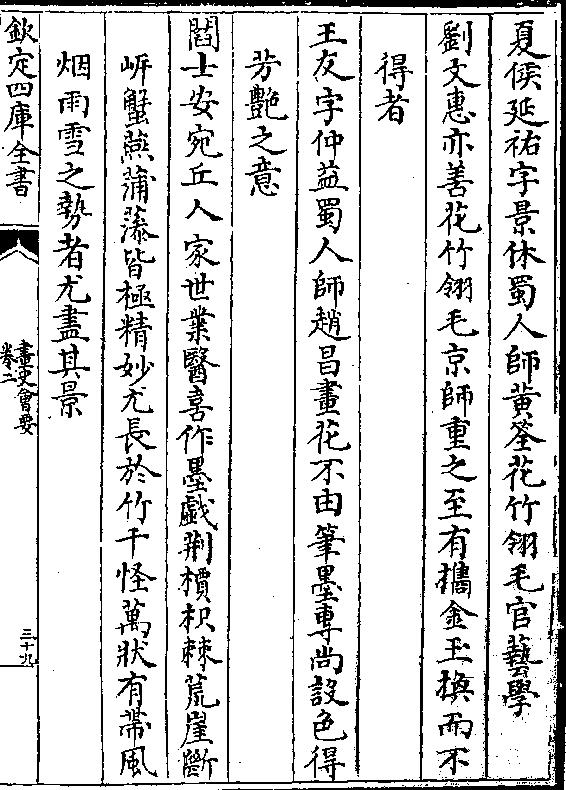 夏侯延祐字景休蜀人師黄筌花竹翎毛官藝學
劉文惠亦善花竹翎毛京師重之至有攜金玉換而不
得者
王友字仲益蜀人師趙昌畫花不由筆墨專尚設色得
芳艷之意
閻士安宛丘人家世業醫喜作墨戯荆檟枳棘荒崖斷
岍蟹燕蒲藻皆極精妙尤長於竹千怪萬狀有帶風
烟雨雪之勢者尤盡其景
欽定四庫全書
畫史會要
卷二
三十九